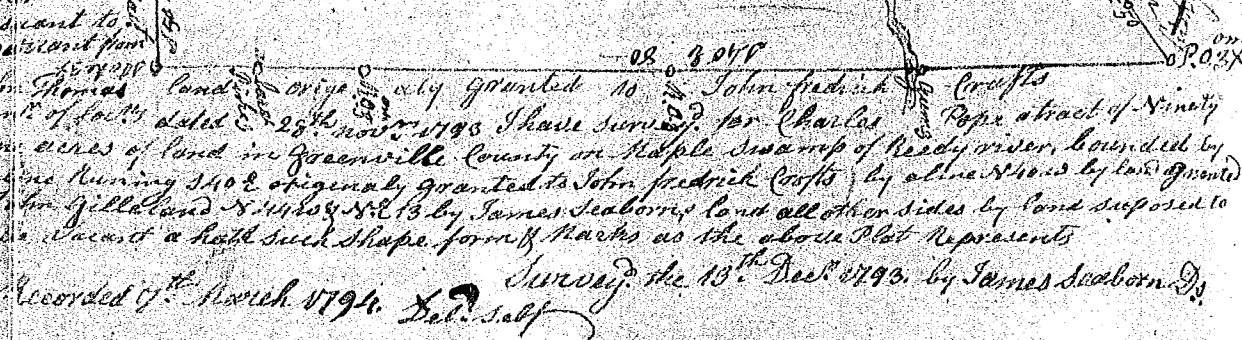 suant to
warrant from
Thomas land origenaly Granted to John fredrick Crafts
dated 28th novr 1793 I have survey.d for Charles Pope a tract of Ninety
acres of land in Greenville County on Maple Swamp of Reedy river, bounded by
line Runing S40E originaly granted to John fredrick Crofts by a line N40W by land granted
John Gilleland N44W & NE13 by James Seaborns land all other sides by land suposed to
be vacant & hath such shape form & Marks as the above Plat Represents
Survey.d the 13th Decr 1793. by James Seaborn Ds.
Recorded 7th March 1794. Deld. Self